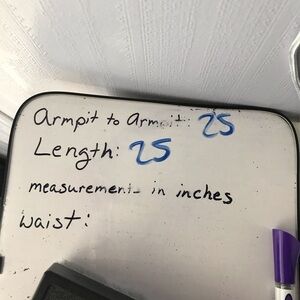 armpit to Armpit: 25
Length: 25
measurements in inches
waist: